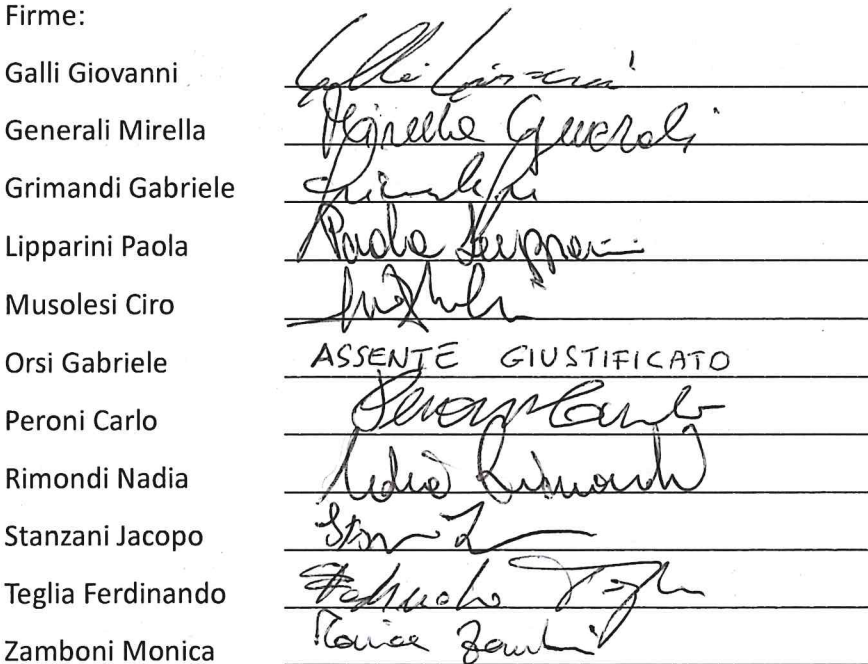 Firme:
Galli Giovanni Galli Giovanni
Generali Mirella Mirella Generali
Grimandi Gabriele
Lipparini Paola Paola Lipparini
Musolesi Ciro
Orsi Gabriele ASSENTE GIUSTIFICATO
Peroni Carlo Peroni Carlo
Rimondi Nadia Nadia Rimondi
Stanzani Jacopo
Teglia Ferdinando Ferdinando Teglia
Zamboni Monica Monica Zamboni